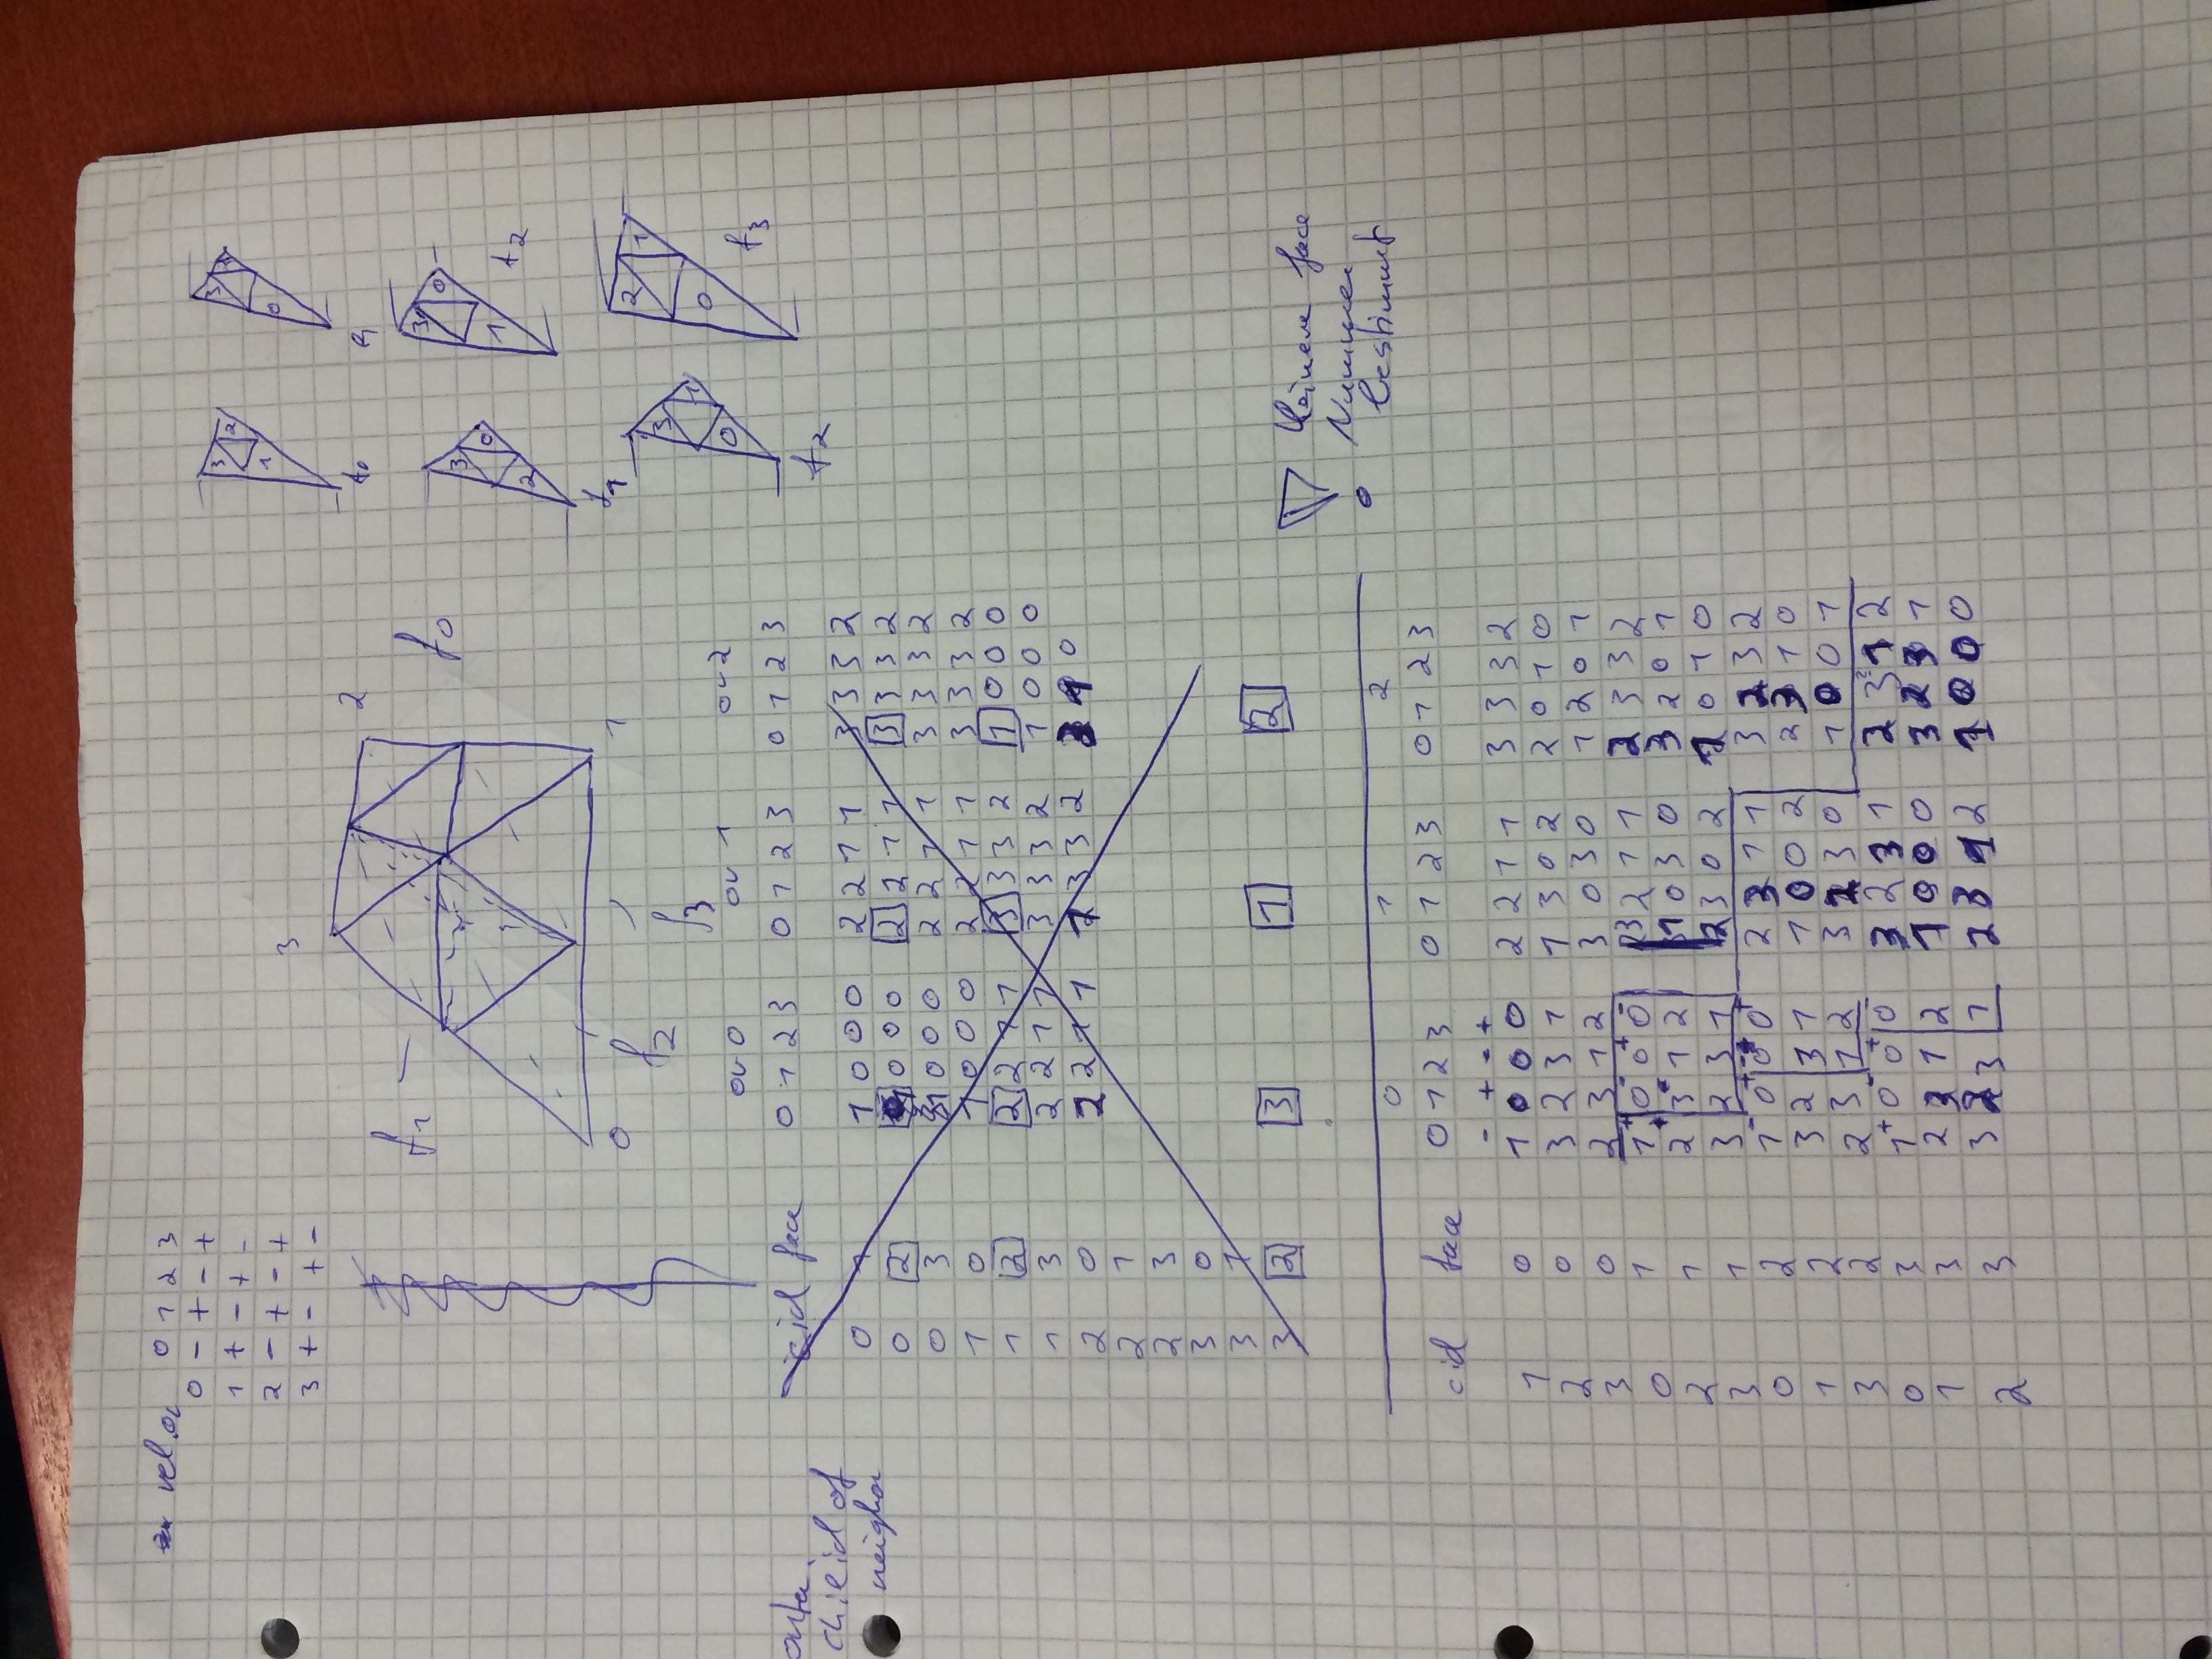 vel.or 0 1 2 3
0 - + - +
1 + - + -
2 - + - +
3 + - + -
3 2 3 2
1 0
f0 f1
3
2
f1
f0
3 0 3 0
2 1
f2
f1
0 1
f2
f3
3 1 2 1
0 0
f3
f2
or 0 or 1 or 2
cid face 0 1 2 3 0 1 2 3 0 1 2 3
child of
neighor
0 1 1 0 0 0 2 2 1 1 3 3 3 2
0 2 0 0 0 2 2 1 1 3 3 3 2
0 3 1 0 0 0 2 2 1 1 3 3 3 2
1 0 1 0 0 0 2 2 1 1 3 3 3 2
1 2 2 2 1 1 3 3 3 2 1 0 0 0
1 3 2 2 1 1 3 3 3 2 1 0 0 0
2 0 2 2 1 1 1 3 3 2 3 1 0
2 1
2 3
3 0
3 1
3 2 3 1 2
kleinere face
Nummer
bestimmt
0 1 2
cid face 0 1 2 3 0 1 2 3 0 1 2 3
- + - +
1 0 1 0 0 0 2 2 1 1 3 3 3 2
2 0 3 2 3 1 1 3 0 2 2 0 1 0
3 0 2 3 1 2 3 0 3 0 1 2 0 1
0 1 1+ 0- 0+ 0- 3 2 1 1 2 3 3 2
2 1 2 3 1 2 1 0 3 0 3 2 0 1
3 1 3 2 3 1 2 3 0 2 1 0 1 0
0 2 1- 0+ 0 0+ 2 3 1 1 3 2 3 2
1 2 3 2 3 1 1 0 0 2 2 3 1 0
3 2 2 3 1 2 3 2 3 0 1 0 0 1
0 3 1+ 0- 0+ 0- 3 2 3 1 2 3 1 2
1 3 2 3 1 2 1 0 0 0 3 2 3 1
2 3 3 2 3 1 2 3 1 2 1 0 0 0